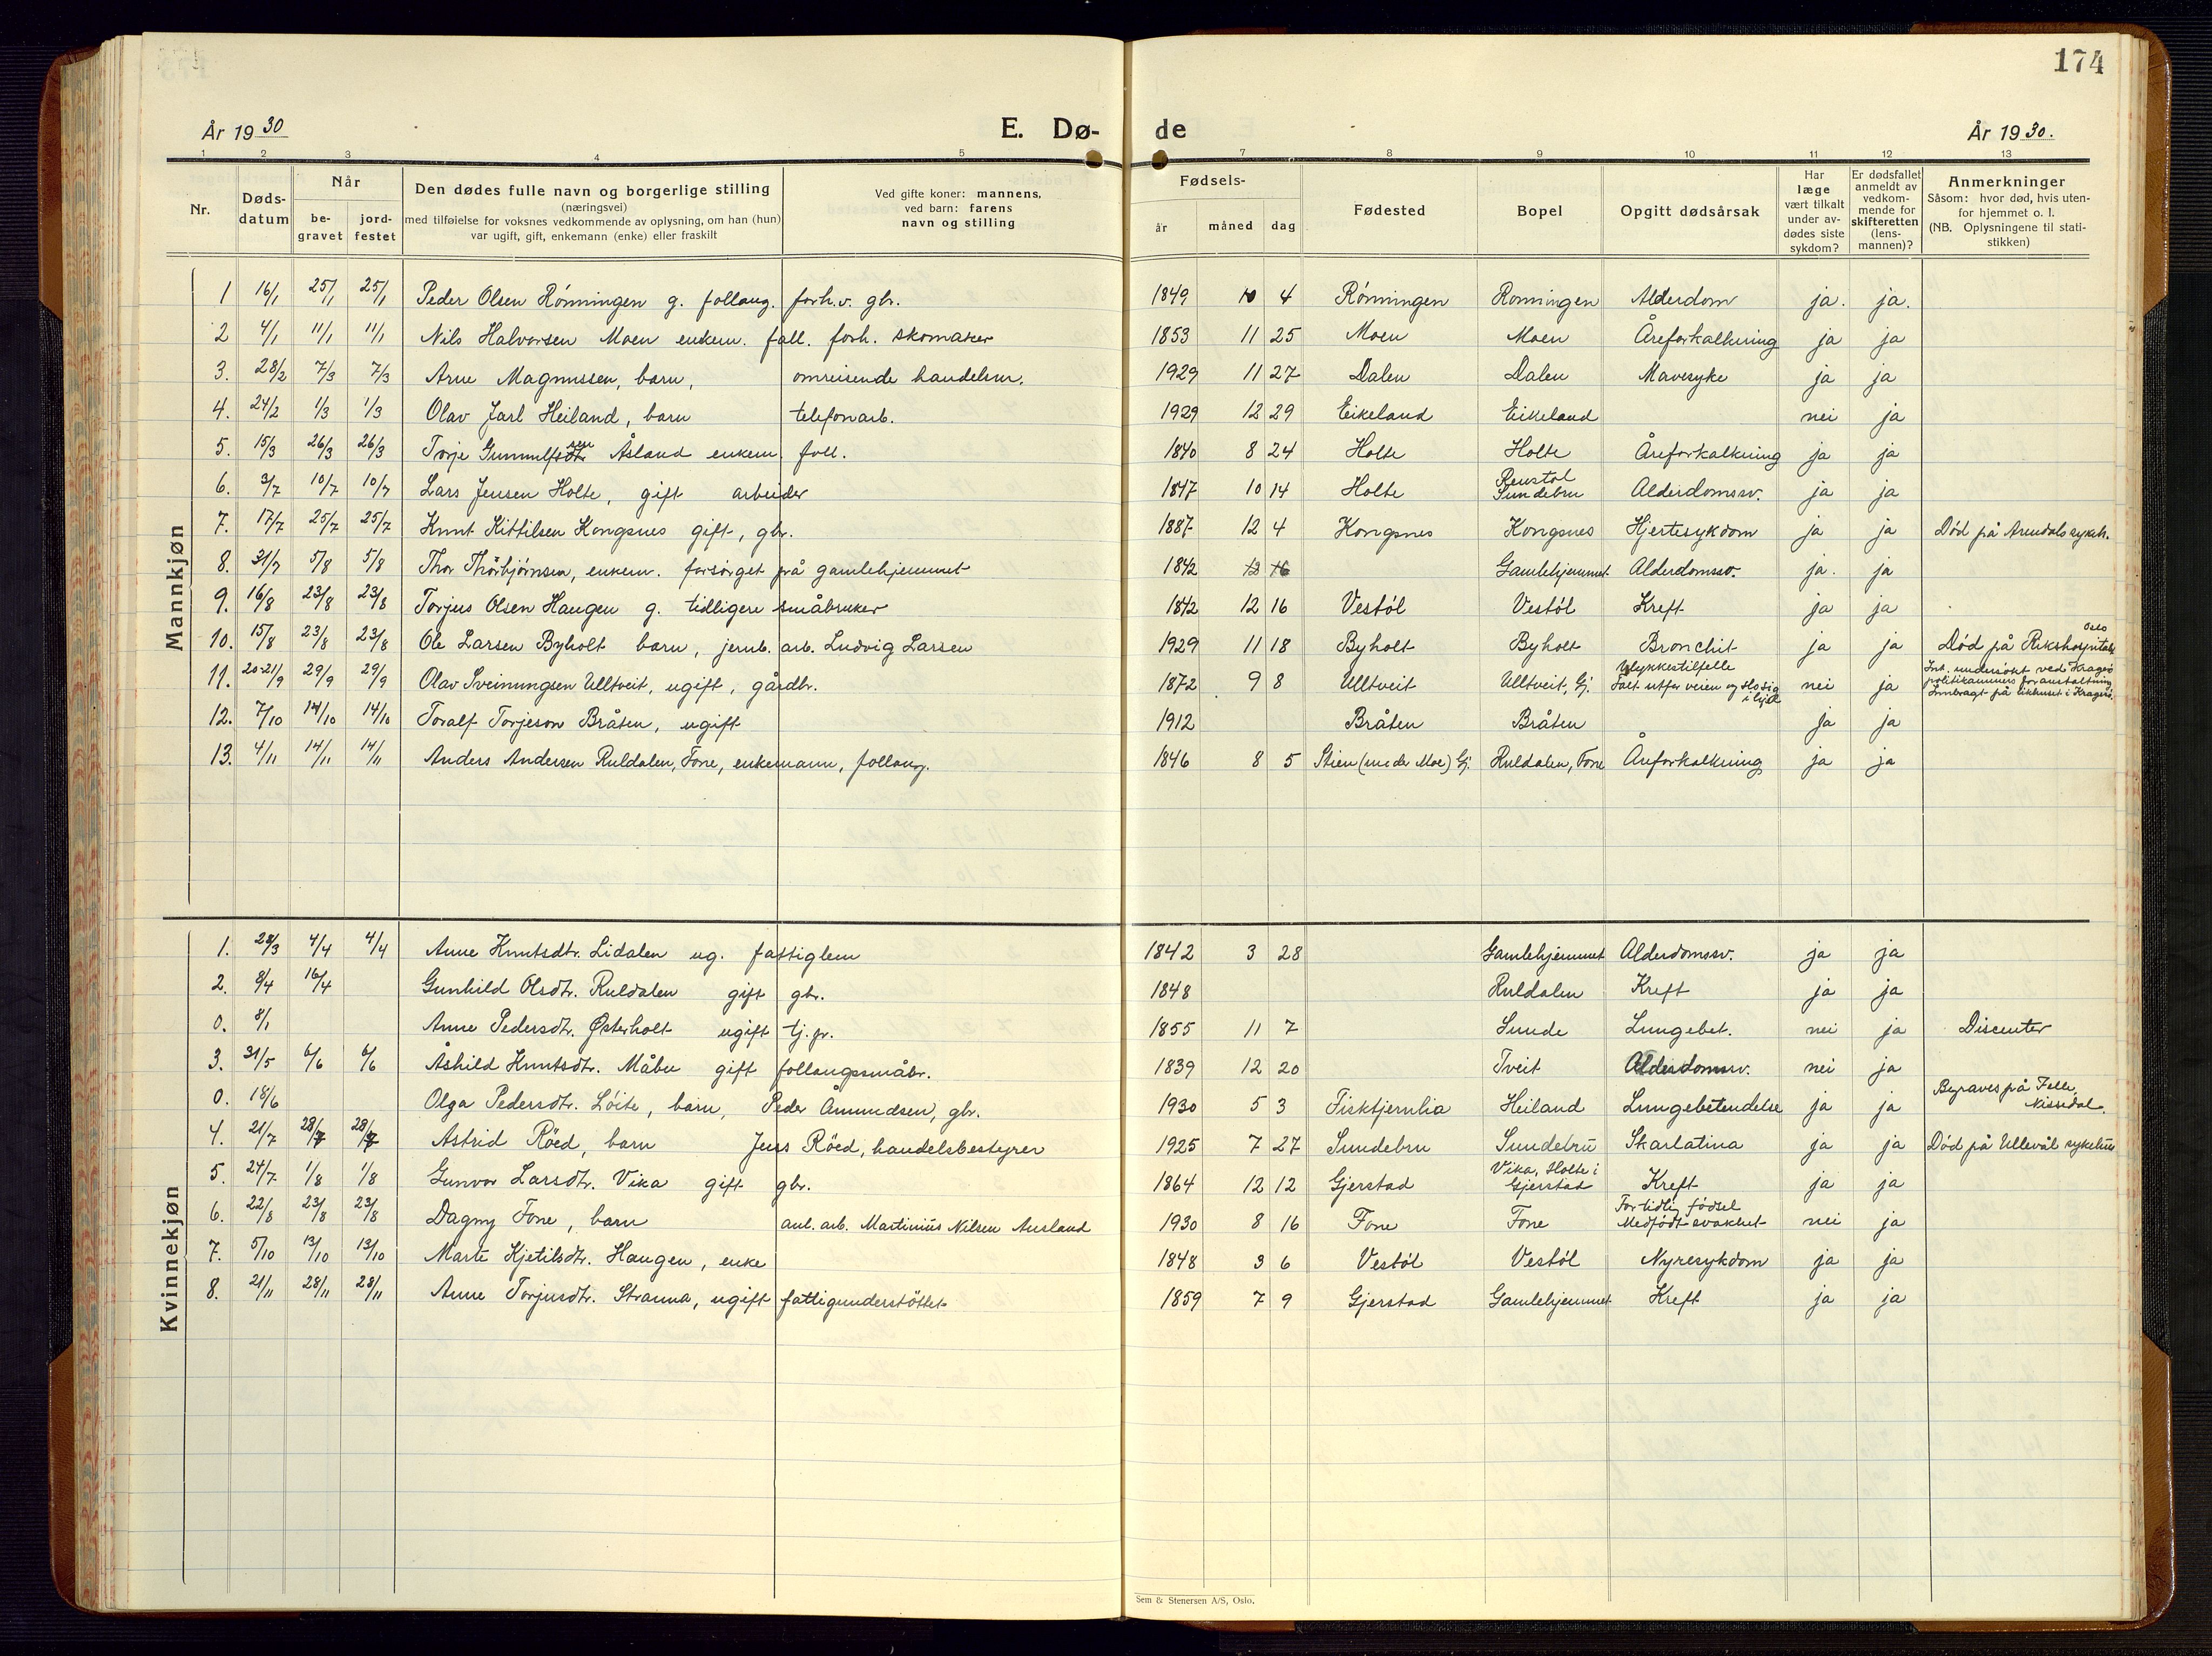 174
År 19 30
E. Dø-
de
År 19 30.
1 2 3 4 5 7 8 9 10 11 12 13
Nr.
Døds-
datum
Når
be-
gravet
jord-
festet
Den dødes fulle navn og borgerlige stilling
(næringsvei)
med tilføielse for voksnes vedkommende av oplysning, om han (hun)
var ugift, gift, enkemann (enke) eller fraskilt
Ved gifte koner: mannens,
ved barn: farens
navn og stilling
Fødsels-
år måned dag
Fødested
Bopel
Opgitt dødsårsak
Har
læge
vært tilkalt
under av-
dødes siste
sykdom?
Er dødsfallet
anmeldt av
vedkom-
mende for
skifteretten
(lens-
mannen)?
Anmerkninger
Såsom: hvor død, hvis uten-
for hjemmet o. l.
(NB. Oplysningene til stati-
stikken)
Mannkjøn
1 16/1 25/1 25/1 Peder Olsen Rönningen g. follaug. forh.v. gbr. 1849 10 4 Rönningen Rönningen Alderdom ja. ja.
2 4/1 11/1 11/1 Nils Halvorsen Moen enkem. foll. forh. skomaker 1853 11 25 Moen Moen Åreforkalkning ja ja
3. 28/2 7/3 7/3 Arne Magnussen, barn, omreisende handelsm. 1929 11 27 Dalen Dalen Mavesyke ja ja
4. 24/2 1/3 1/3 Olav Jarl Heiland, barn telefonarb. 1929 12 29 Eikeland Eikeland nei ja
5. 15/3 26/3 26/3 Torje Gunnulfsen Åsland enkem. foll. 1840 8 24 Holte Holte Åreforkalkning ja ja
6. 3/7 10/7 10/7 Lars Jensen Holte, gift arbeider 1847 10 14 Holte Renstöl Sundebru Alderdomssv. ja ja
7. 17/7 25/7 25/7 Knut Kittilsen Kongsnes gift, gbr. 1887 12 4 Kongsnes Kongsnes Hjertesykdom ja ja Död på Arendals sykeh.
8. 31/7 5/8 5/8 Thor Thorbjörnsen, enkem. forsörget på gamlehjemmet 1842 12 16 Gamlehjemmet Alderdomssv. ja. ja
9. 16/8 23/8 23/8 Torjus Olsen Haugen g. tidligere småbruker 1842 12 16 Vestöl Vestöl Kreft ja ja
10. 15/8 23/8 23/8 Ole Larsen Byholt barn, jernb. arb. Ludvig Larsen 1929 11 18 Byholt Byholt Bronchit ja ja Död på Rikshospitalet Oslo
11. 20-21/9 29/9 29/9 Olav Sveinungsen Ulltveit, ugift, gårdbr. 1872 9 8 Ulltveit Ulltveit, Gj. Ulykkestilfelle
Falt utfor veien og slo sig
i hjel nei ja undersökt ved Kragerö
politikammers foranstaltning
Innbragt på likhuset i Kragerö.
12. 7/10 14/10 14/10 Toralf Torjeson Bråten, ugift 1912 Bråten Bråten ja ja
13. 4/11 14/11 14/11 Anders Andersen Ruldalen, Fone, enkemann, follaug. 1846 8 5 Stien (under Moe) Gj. Ruldalen, Fone Åreforkalkning ja ja
Kvinnekjøn
1. 28/3 4/4 4/4 Anne Knutsdtr. Lidalen ug. fattiglem 1842 3 28 Gamlehjemmet Alderdomssv. ja ja
2. 8/4 16/4 Gunhild Olsdtr. Ruldalen gift gbr. 1848 Ruldalen Kreft ja ja
0. 8/1 Anne Pedersdtr. Østerholt ugift tj.pr. 1855 11 7 Sunde Lungebet. nei ja Discenter
3. 31/5 6/6 6/6 Åshild Knutsdtr. Måbu gift follaugssmåbr. 1839 12 20 Tveit Alderdomssv. nei ja
0. 18/6 Olga Pedersdtr. Löite, barn, Peder Åmundsen, gbr. 1930 5 3 Fisktjernlia Heiland Lungebetendelse ja ja Begraves på Felle,
Nissedal.
4. 21/7 28/7 28/7 Astrid Röed, barn Jens Röed, handelsbestyrer 1925 7 27 Sundebru Sundebru Skarlatina ja ja Död på Ullevål sykehus
5. 24/7 1/8 1/8 Gunvor Larsdtr. Vika gift gbr. 1864 12 12 Gjerstad Vika, Holte i
Gjerstad Kreft ja ja
6. 22/8 23/8 23/8 Dagny Fone, barn anl. arb. Martinius Nilsen Ausland 1930 8 16 Fone Fone For tidlig födsel
Medfödt svakhet nei ja
7. 5/10 13/10 13/10 Marte Kjetilsdtr. Haugen, enke 1848 3 6 Vestöl Vestöl Nyresykdom ja ja
8. 21/11 28/11 28/11 Anne Torjusdtr. Stranna, ugift fattigunderstöttet 1859 7 9 Gjerstad Gamlehjemmet Kreft ja ja
Sem & Stenersen A/S, Oslo.